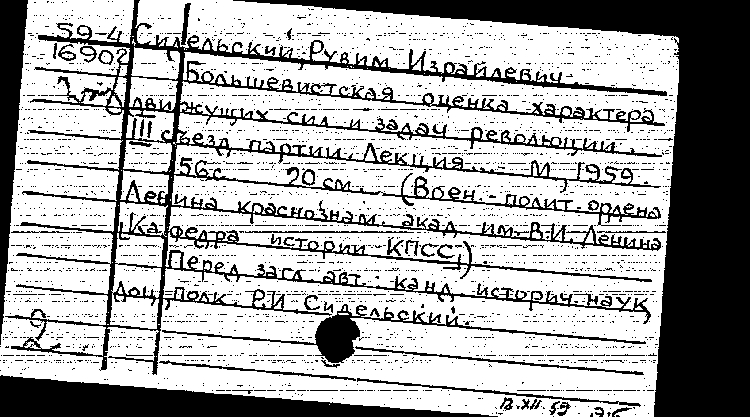 59-4 Сидельский, Рувим Израйлевич.
16902 Большевистская оценка характера
движущих сил и задач революции.
III съезд партии. Лекция... М., 1959.
56 с. 20 см. (Воен.-полит. ордена
Ленина краснознам. акад. им. В.И. Ленина
Кафедра истории КПСС).
Перед загл. авт.: канд. историч. наук,
доц., полк. Р.И. Сидельский.
2
12.XII.59